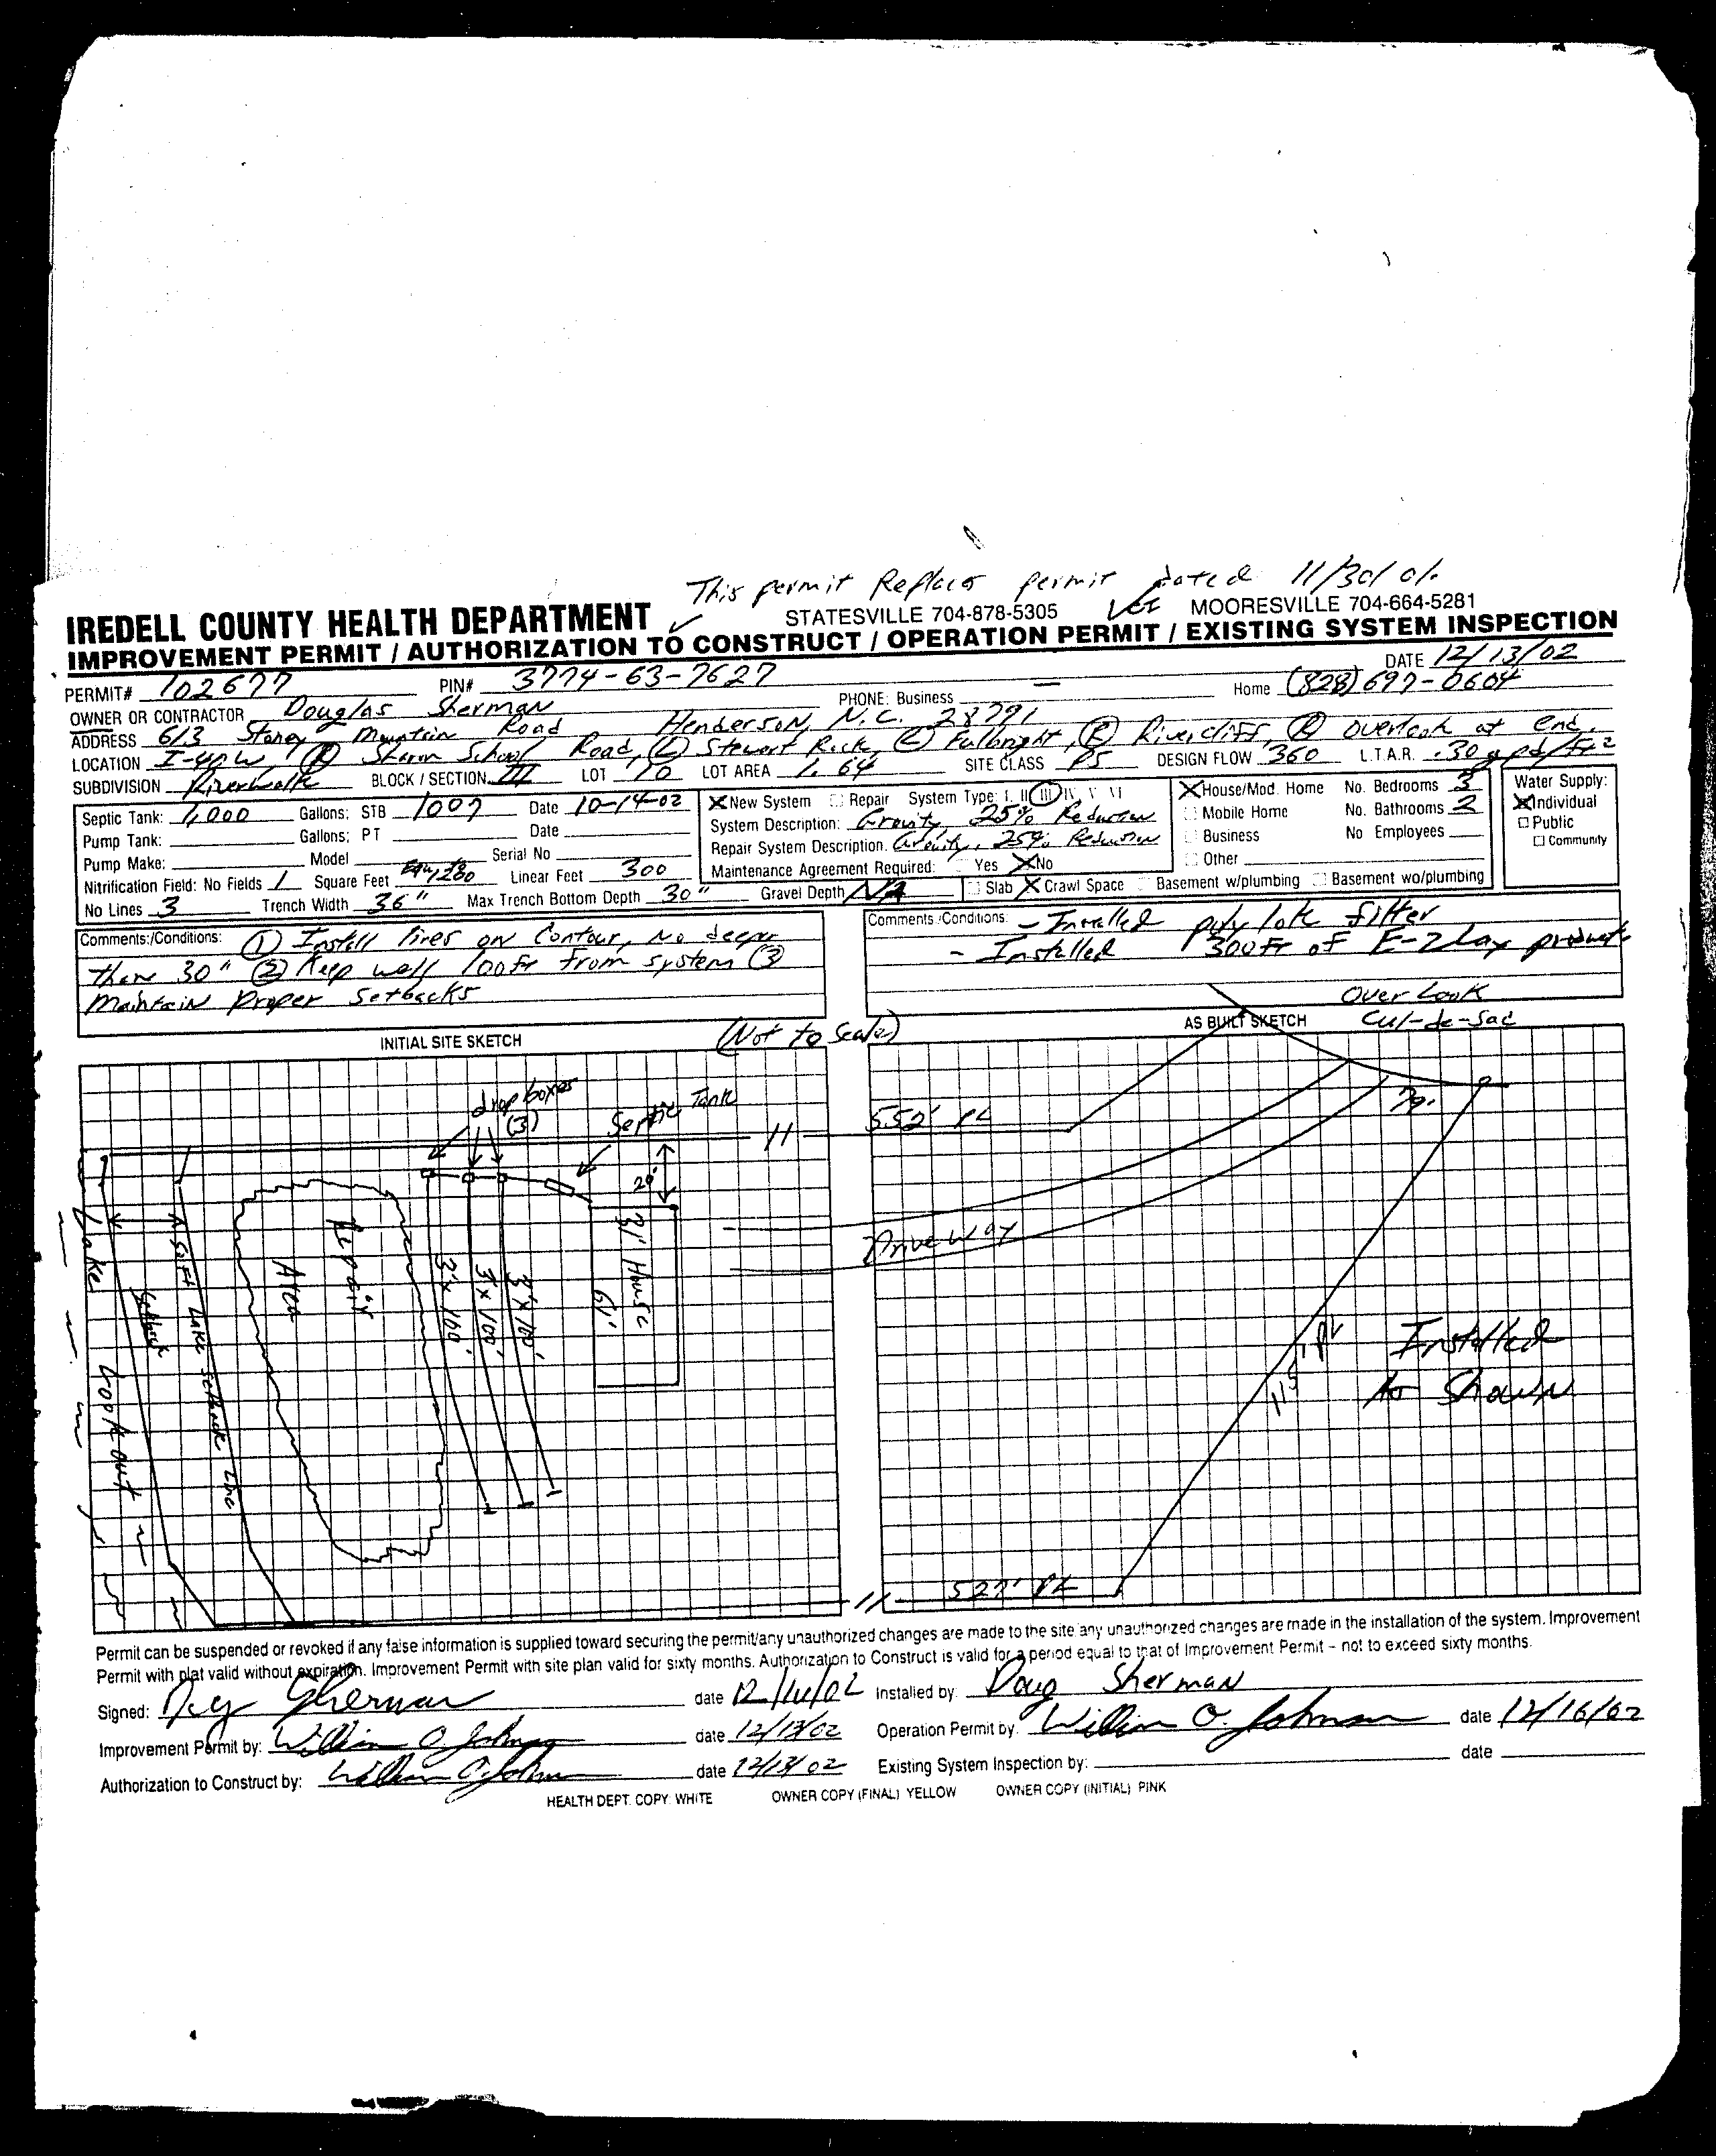 This permit Replaces permit dated 11/30/01.
IREDELL COUNTY HEALTH DEPARTMENT STATESVILLE 704-878-5305 MOORESVILLE 704-664-5281
IMPROVEMENT PERMIT / AUTHORIZATION TO CONSTRUCT / OPERATION PERMIT / EXISTING SYSTEM INSPECTION
PERMIT# 102677 PIN# 3774-63-7627 DATE 12/13/02
OWNER OR CONTRACTOR Douglas Sherman PHONE: Business — Home (828) 697-0604
ADDRESS 613 Stoney Mountain Road Henderson, N.C. 28791
LOCATION I-40W, (R) Sharon School Road, (L) Stewart Rock, (L) Fulbright, (R) Rivercliff, (R) overlook at end.
SUBDIVISION Riverwalk BLOCK / SECTION III LOT 70 LOT AREA 1.64 SITE CLASS PS DESIGN FLOW 360 L.T.A.R. .30 gpd/ft²
Septic Tank: 1,000 Gallons; STB 1007 Date 10-14-02
Pump Tank: Gallons; PT Date
Pump Make: Model Serial No
Nitrification Field: No Fields 1 Square Feet Equ to 1200 Linear Feet 300
No Lines 3 Trench Width 36" Max Trench Bottom Depth 30" Gravel Depth N/A
X New System Repair System Type: I II III IV V VI
System Description: Gravity 25% Reduction
Repair System Description. Gravity, 25% Reduction
Maintenance Agreement Required: Yes X No
Slab X Crawl Space Basement w/plumbing Basement wo/plumbing
X House/Mod. Home No. Bedrooms 3
Mobile Home No. Bathrooms 2
Business No Employees
Other
Water Supply:
X Individual
Public
Community
Comments:/Conditions: (1) Install lines on Contour, No deeper
than 30" (2) Keep well 100Ft from system (3)
Maintain Proper Setbacks
Comments:/Conditions: - Installed poly lok filter
- Installed 300Ft of E-Z lay product
INITIAL SITE SKETCH
(Not to Scale)
AS BUILT SKETCH
Over Look
Cul-de-sac
drop boxes
(3)
Septic Tank
20'
31' House
61'
3'x100'
3'x100'
3'x100'
Repair
Area
Lake Setback Line
Setback
Lake Lookout
552' PL
79'
Driveway
115' PL
527' PL
Installed
As Shown
Permit can be suspended or revoked if any false information is supplied toward securing the permit/any unauthorized changes are made to the site/any unauthorized changes are made in the installation of the system. Improvement
Permit with plat valid without expiration. Improvement Permit with site plan valid for sixty months. Authorization to Construct is valid for a period equal to that of Improvement Permit – not to exceed sixty months.
Signed: Doug Sherman date 12/16/02 Installed by: Doug Sherman
Improvement Permit by: William O. Johnson date 12/13/02 Operation Permit by. William O. Johnson date 12/16/02
Authorization to Construct by: William O. Johnson date 12/13/02 Existing System Inspection by: date
HEALTH DEPT. COPY: WHITE OWNER COPY (FINAL) YELLOW OWNER COPY (INITIAL) PINK